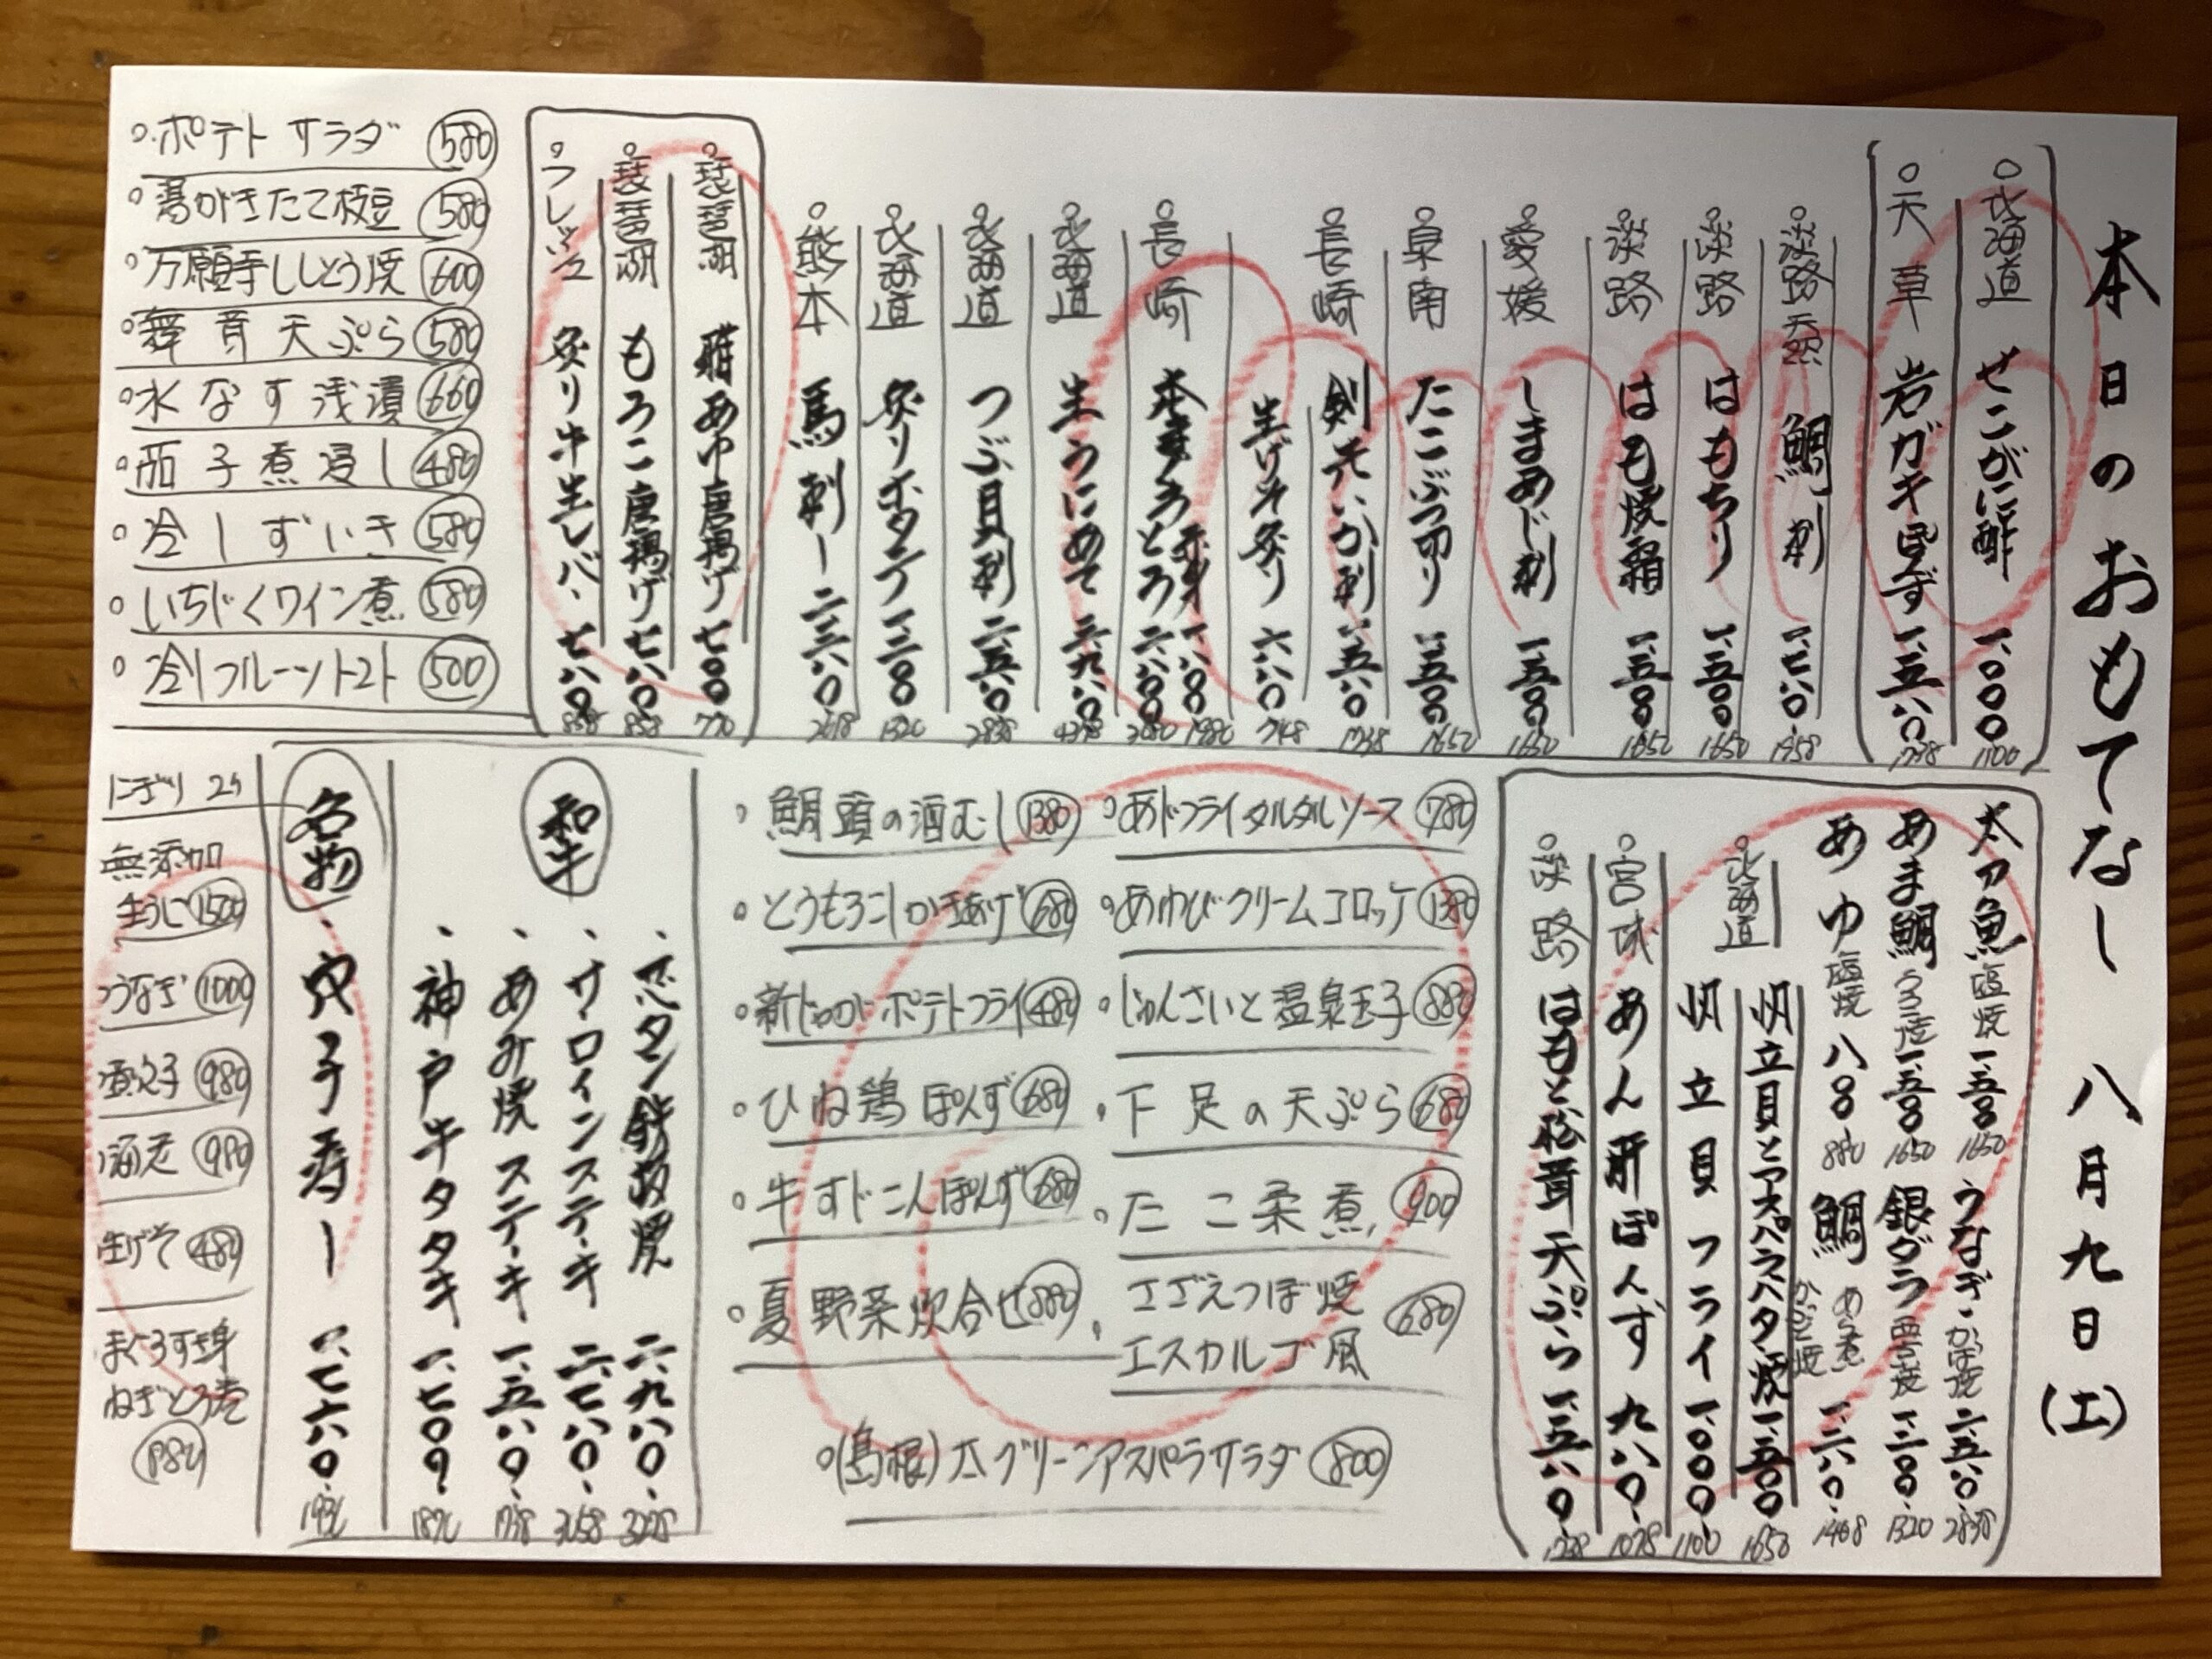 本日のおもてなし 八月九日(土)
北海道 せこがに酢 一、000 1100
天草 岩ガキぽんず 一、五八0 1738
淡路天然 鯛刺 一、七八0 1958
淡路 はもちり 一、五00 1650
淡路 はも焼霜 一、五00 1650
愛媛 しまあじ刺 一、五00 1650
泉南 たこぶつ切り 一、五00 1650
長崎 剣先いか刺 一、五八0 1738
生げそ炙り 六八0 748
長崎 本まぐろ 赤身 一、八00 1980
とろ 二、八00 3080
北海道 生うにめて 三、九八0 4378
北海道 つぶ貝刺 二、五八0 2838
北海道 炙りホタテ 一、二00 1320
熊本 馬刺し 二、三八0 2618
琵琶湖 稚あゆ唐揚げ 七00 770
琵琶湖 もろこ唐揚げ 七八0 858
フレッシュ 炙り牛生レバー 七八0 858
ポテトサラダ 580
湯がきたて枝豆 580
万願寺ししとう焼 600
舞茸天ぷら 580
水なす浅漬 660
茄子煮浸し 480
冷しずいき 580
いちじくワイン煮 580
冷しフルーツトマト 500
太刀魚 塩焼 一、五00 1650
うなぎ かば焼 二、五八0 2838
あま鯛 うろこ焼 一、五00 1650
銀ダラ 西京焼 一、二00 1320
あゆ 塩焼 八00 880
鯛 あら煮 かぶと焼 一、二八0 1408
北海道 帆立貝とアスパラバター焼 一、五00 1650
帆立貝フライ 一、000 1100
宮城 あん肝ぽんず 九八0 1078
淡路 はもと松茸天ぷら 一、五八0 1738
あじフライタルタルソース 780
あわびクリームコロッケ 1380
じゅんさいと温泉玉子 880
下足の天ぷら 680
たこ柔煮 900
さざえつぼ焼
エスカルゴ風 680
鯛頭の酒むし 1380
とうもろこしかきあげ 680
新じゃがポテトフライ 480
ひね鶏ぽんず 680
牛すじこんぽんず 680
夏野菜炊合せ 880
(島根)太グリーンアスパラサラダ 800
和牛
芯タン鉄板焼 二、九八0
サーロインステーキ 二、七八0 3058
あみ焼ステーキ 一、五八0 1738
神戸牛タタキ 一、七0
名物
穴子寿し 一、七六0 1936
にぎり 2ケ
無添加
生うに 1500
うなぎ 1000
煮穴子 980
生げそ 480
まぐろすき身
ねぎとろ巻